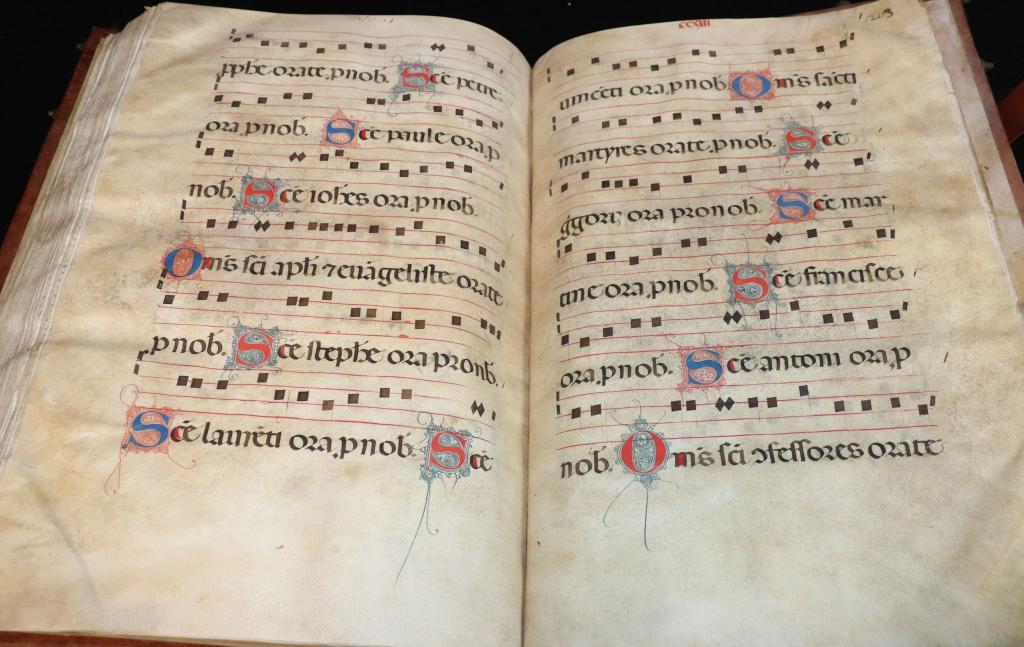 pphe orate. p nob. Sce petre
ora. p nob. Sce paule ora. p
nob. Sce iohes ora. p nob.
Oms sci apli ⁊ euāgeliste orate
p nob. Sce stephe ora pro nob.
Sce laureti ora. p nob. Sce
CCXIII
uinceti ora. p nob. Oms sacti
martyres orate. p nob. Sce
ggori ora pro nob. Sce mar
tine ora. p nob. Sce francisce
ora. p nob. Sce antoni ora. p
nob. Oms sci ɔfessores orate